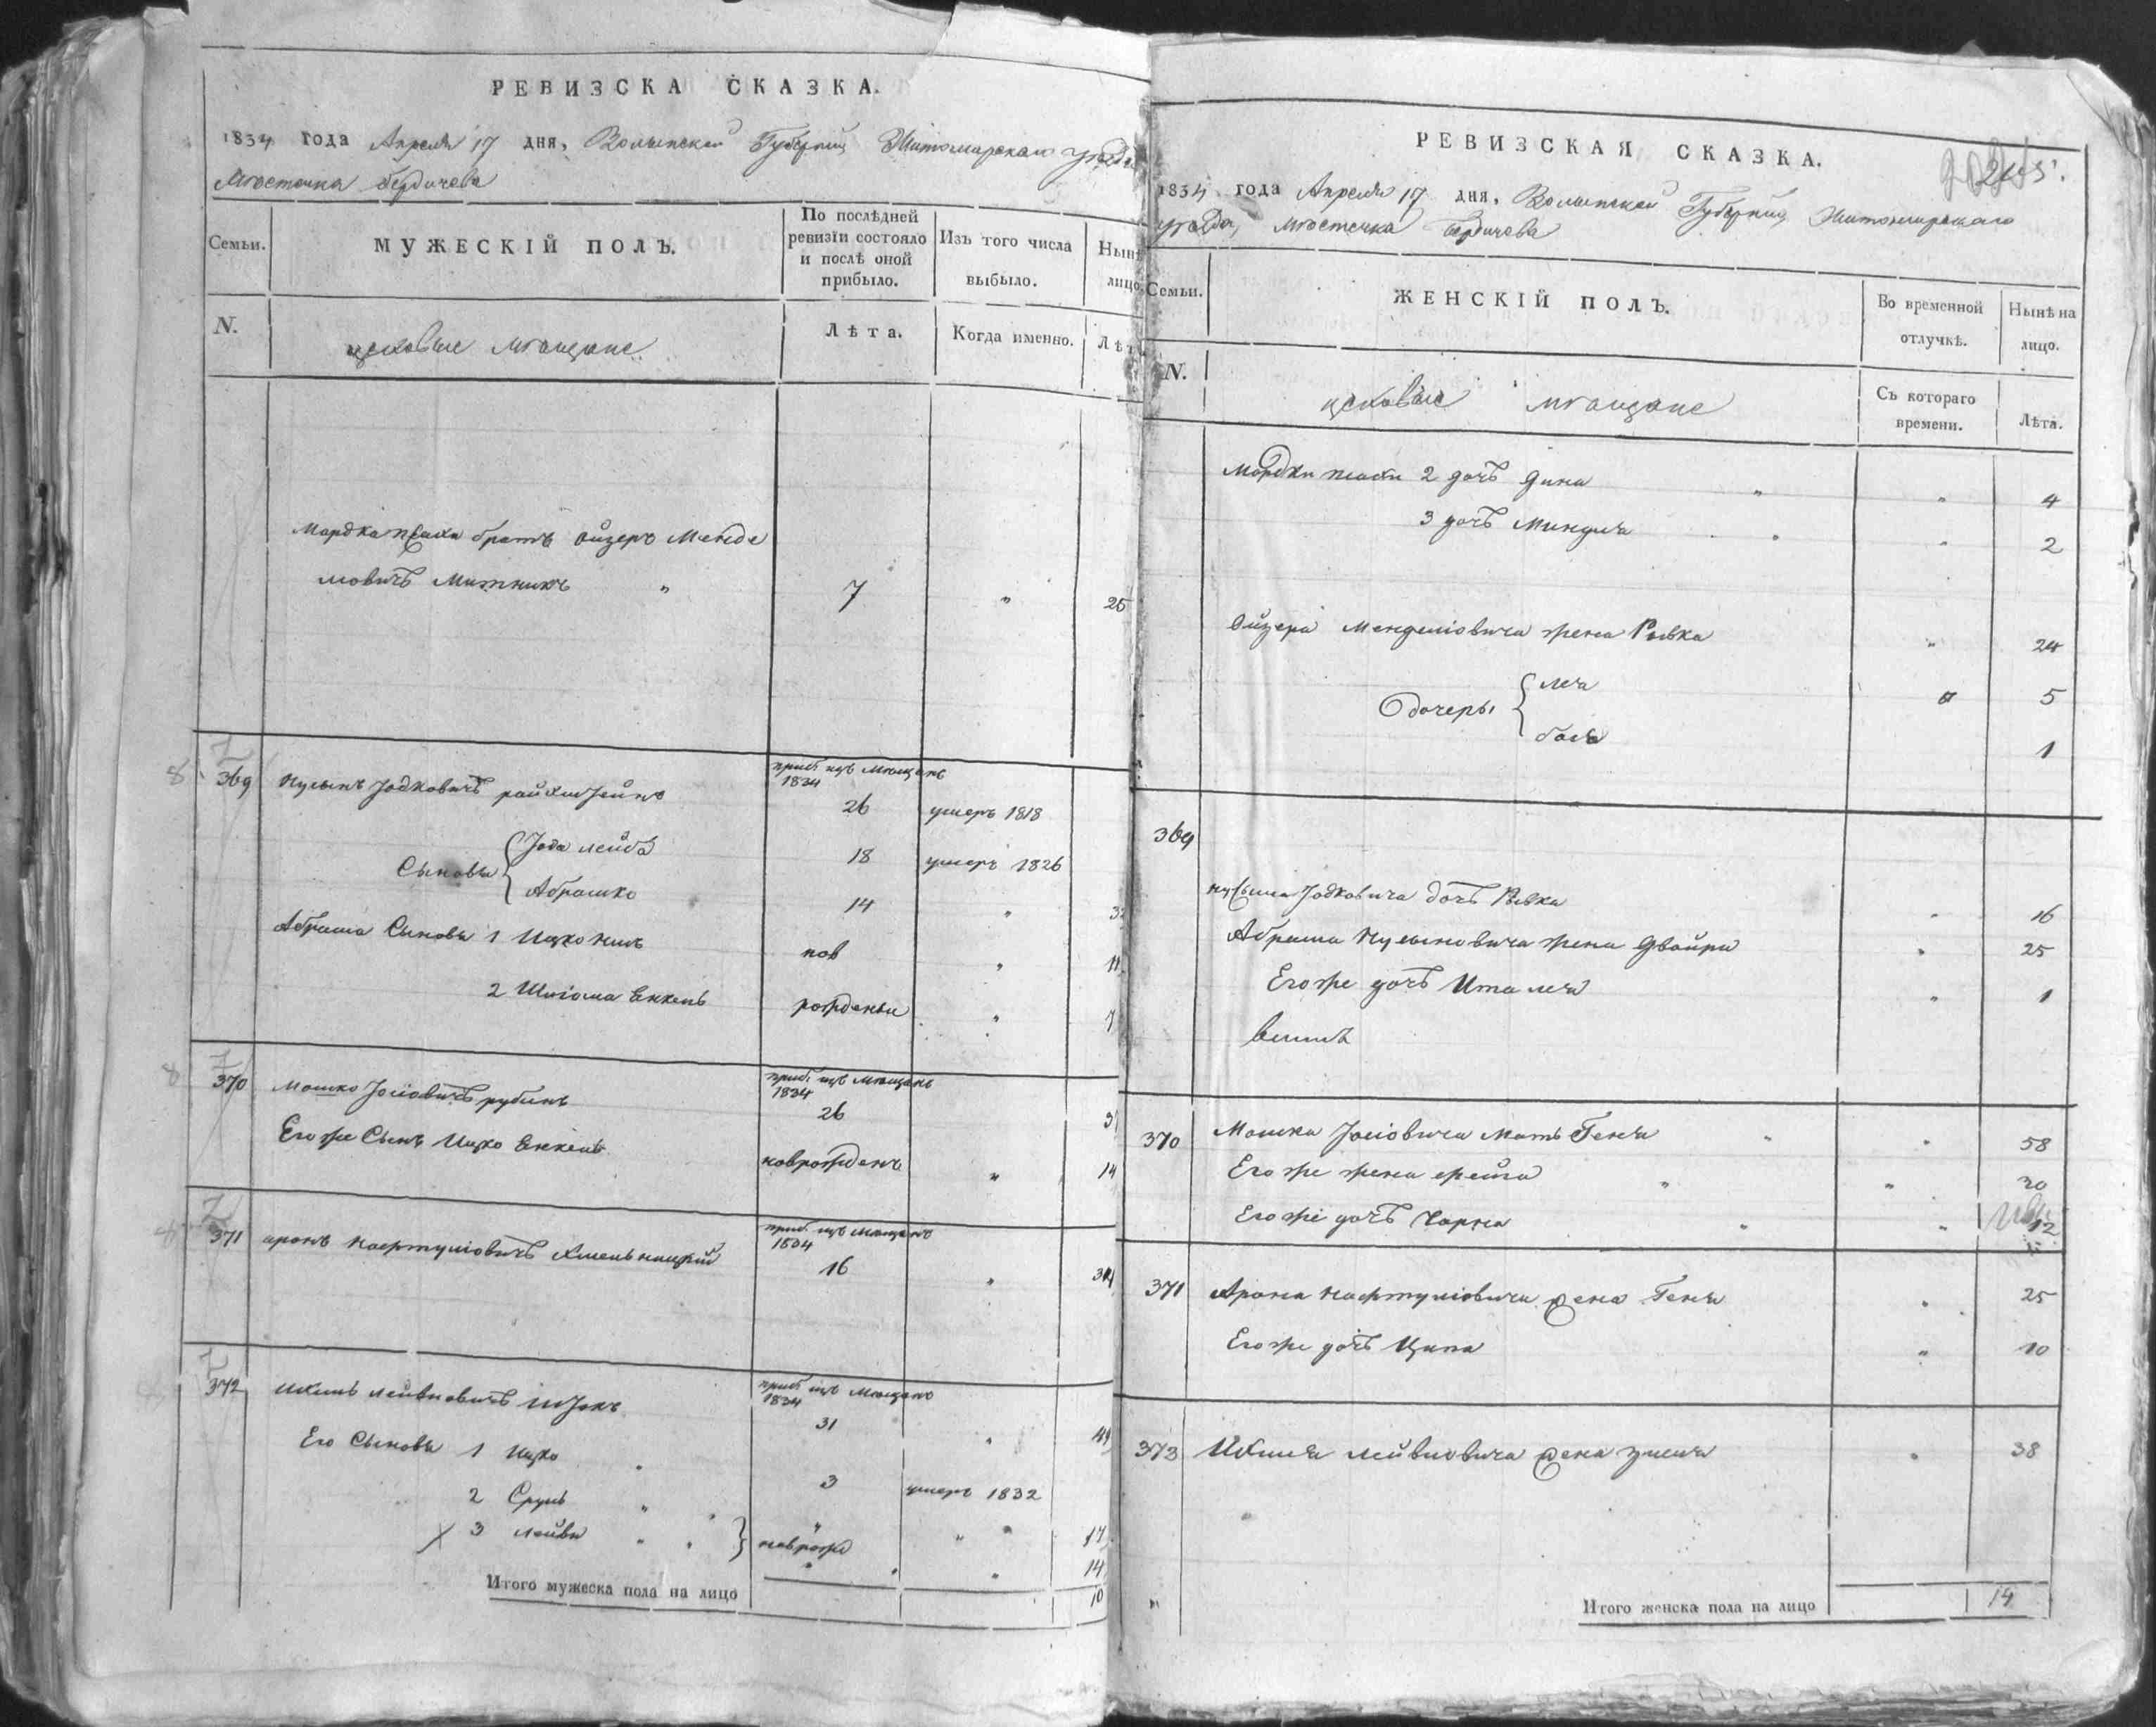 РЕВИЗСКА СКАЗКА.
1834 года Апреля 17 дня, Волынской Губерніи Житомирскаго уѣзда
Мѣстечка Бердичева
Семьи.
МУЖЕСКІЙ ПОЛЪ.
По послѣдней
ревизіи состояло
и послѣ оной
прибыло.
Изъ того числа
выбыло.
Нынѣ
лицо
N.
цеховые мѣщане
Лѣта.
Когда именно.
Лѣт
Мордка братъ Ойзеръ Менде
ліовичъ Митникъ " 7 " 25
369 Нусынъ Іодковичъ
приб. изъ Мѣщанъ
1834
26 умеръ 1818
Сыновья Іода лейба 18 умеръ 1826
Абрамко 14 "
Абрама Сыновья 1 Ицко нов " 11
2 Шліома Енкель рожденые " 7
370 Мошко Іосіовичъ рубинъ
приб. изъ Мѣщанъ
1834
26
Его же Сынъ Ицко Енкель новрожденъ " 14
371 аронъ Нафтуліовичъ Хмельницкій
приб. изъ Мѣщанъ
1834
16 " 34
372 Ихиль лейвиовичъ
приб изъ Мѣщанъ
1834
31 "
Его Сыновья 1 Ицко " 3 умеръ 1832
2 Сруль " " " " 17
3 лейви " " новрож " 14
Итого мужеска пола на лицо 10
РЕВИЗСКАЯ СКАЗКА.
1834 года Апреля 17 дня, Волынской Губерніи Житомирскаго
уѣзда, мѣстечка Бердичева
Семьи.
ЖЕНСКІЙ ПОЛЪ.
Во временной
отлучкѣ.
Нынѣ на
лицо.
N.
цеховые мѣщане
Съ котораго
времени.
Лѣта.
Мордки 2 дочь Дина " " 4
3 дочь Миндля " " 2
Ойзера Менделіовича жена Ривка " 24
дочеры лея " 5
бася 1
369
Нусына Іодковича дочь Ривка " 16
Абрама Нусыновича жена Двойра " 25
Его же дочь Ита лея " 1
370 Мошка Іосіовича мать Геня " " 58
Его же жена фрейга " " 30
Его же дочь Чарна " " 12
371 Арона Нафтуліовича жена Геня " 25
Его же дочь Ципа " 10
373 Ихиля лейвиовича жена " 38
Итого женска пола на лицо 14